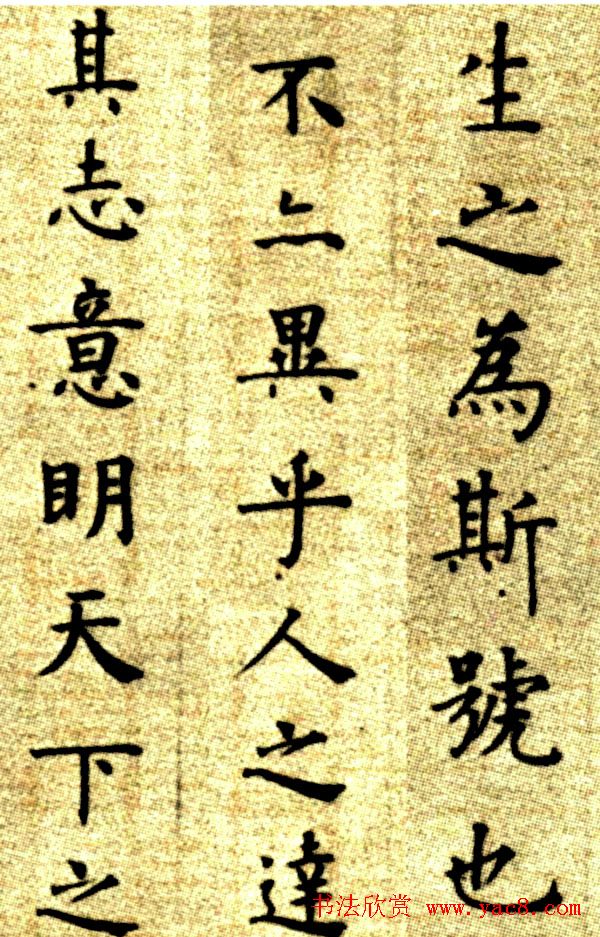 生之為斯號也
不亦異乎人之達
其志意明天下之
书法欣赏 www.yac8.com